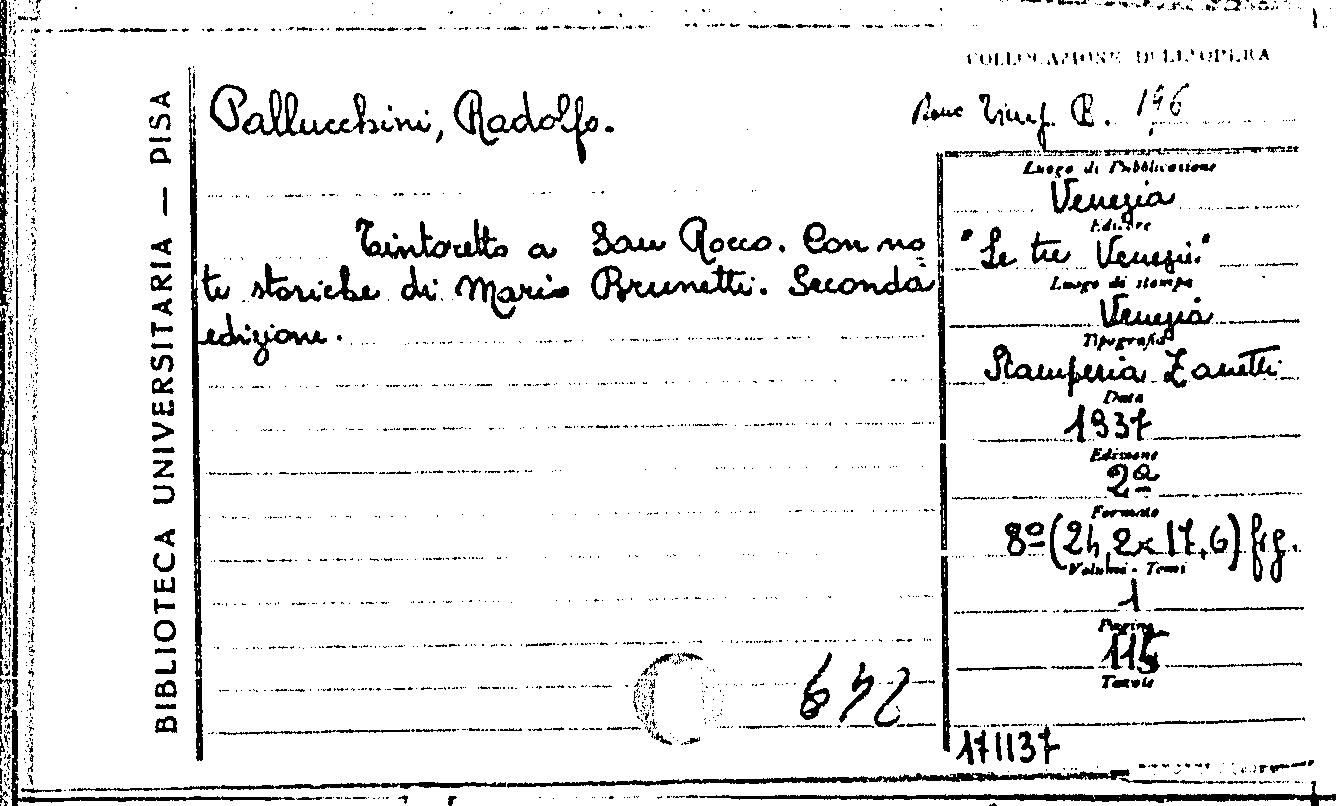 COLLOCAZIONE DELL'OPERA
BIBLIOTECA UNIVERSITARIA — PISA
Pallucchini, Radolfo.
B. 196
Tintoretto a San Rocco. Con no
te storiche di Mario Brunetti. Seconda
edizione.
Luogo di Pubblicazione
Venezia
Editore
"Le tre Venezie"
Luogo di stampa
Venezia
Tipografia
Stamperia Zanetti
Data
1937
Edizione
2ª
Formato
8º (24,2 x 17,6) fig.
Volumi - Tomi
1
Pagine
115
Tavole
171137